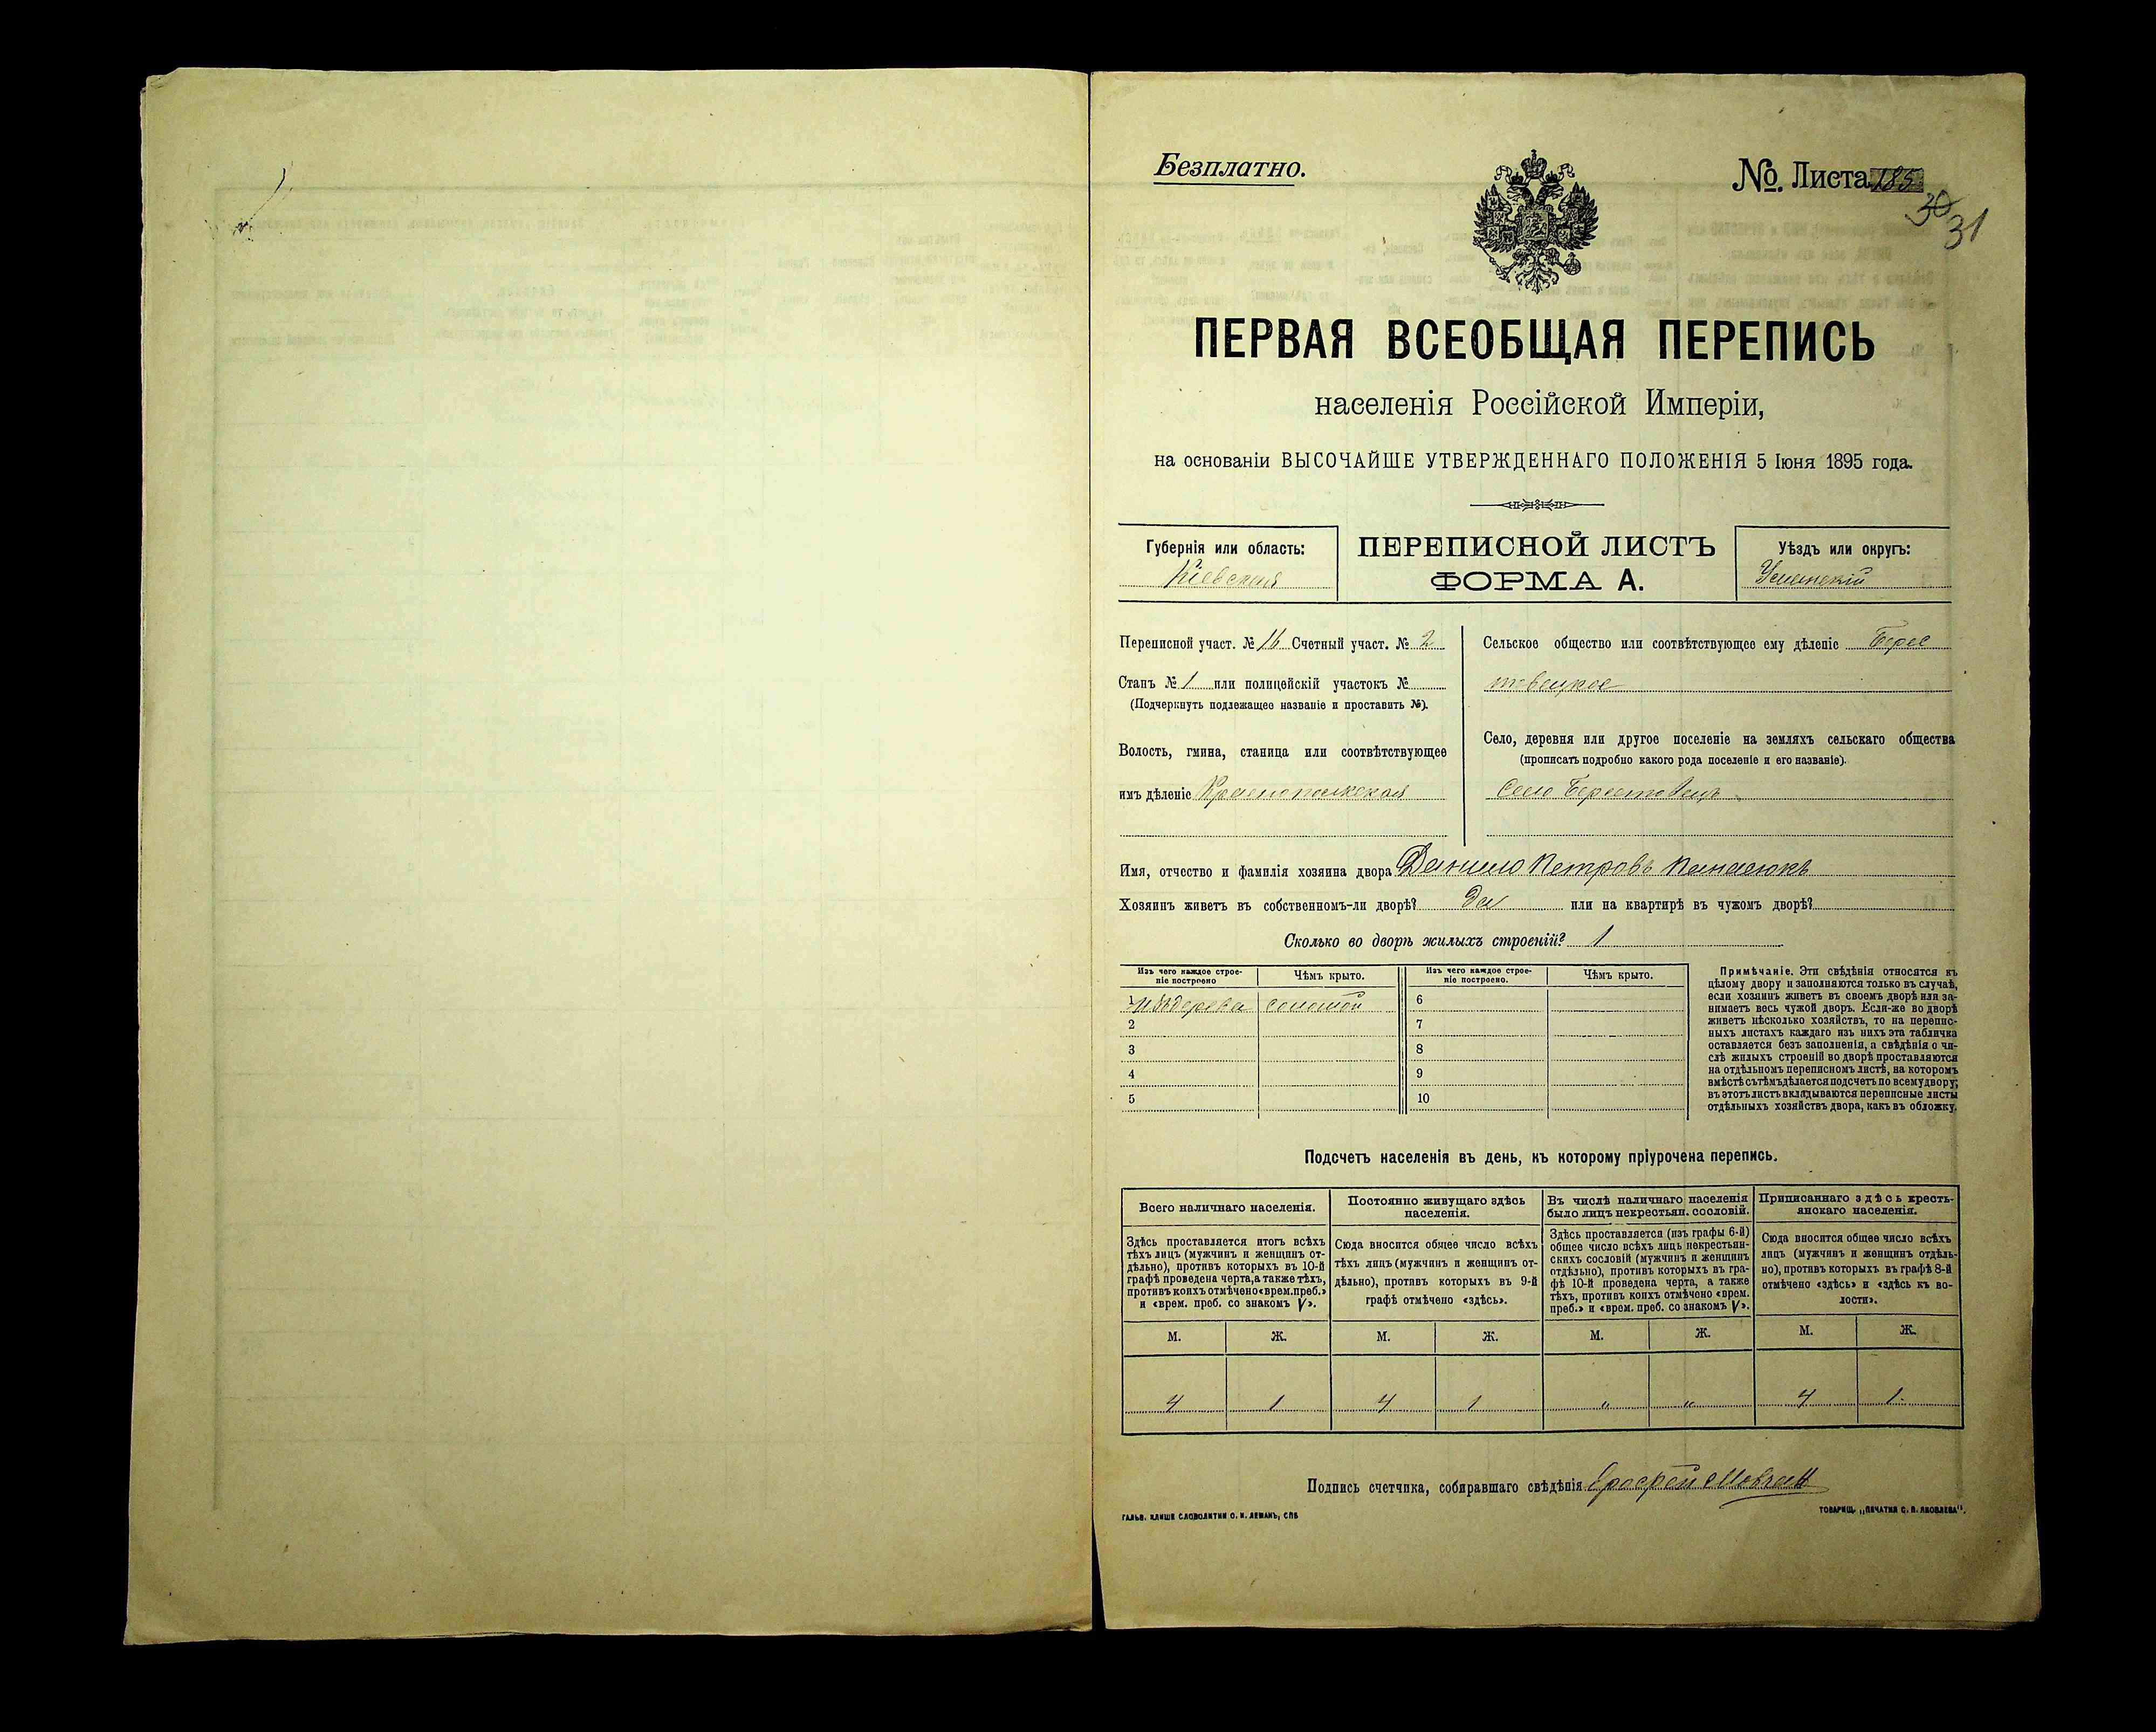 Безплатно.
№ Листа 185
30 31
ПЕРВАЯ ВСЕОБЩАЯ ПЕРЕПИСЬ
населенія Россійской Имперіи,
на основаніи ВЫСОЧАЙШЕ УТВЕРЖДЕННАГО ПОЛОЖЕНІЯ 5 Іюня 1895 года.
Губернія или область:
Кіевская
ПЕРЕПИСНОЙ ЛИСТЪ
ФОРМА А.
Уѣздъ или округъ:
Уманскій
Переписной участ. № 16 Счетный участ. № 2
Станъ № 1 или полицейскій участокъ №
(Подчеркнуть подлежащее названіе и проставить №).
Волость, гмина, станица или соотвѣтствующее
имъ дѣленіе Краснопольская
Сельское общество или соотвѣтствующее ему дѣленіе Берес
товецкое
Село, деревня или другое поселеніе на земляхъ сельскаго общества
(прописать подробно какого рода поселеніе и его названіе).
Село Берестовецъ
Имя, отчество и фамилія хозяина двора Данило Петровъ Панасюкъ
Хозяинъ живетъ въ собственномъ-ли дворѣ? Да или на квартирѣ въ чужомъ дворѣ?
Сколько во дворѣ жилыхъ строеній? 1
Изъ чего каждое строе-
ніе построено
Чѣмъ крыто.
Изъ чего каждое строе-
ніе построено.
Чѣмъ крыто.
1 изъ дерева соломой
2
3
4
5
6
7
8
9
10
Примѣчаніе. Эти свѣдѣнія относятся къ
цѣлому двору и заполняются только въ случаѣ,
если хозяинъ живетъ въ своемъ дворѣ или за-
нимаетъ весь чужой дворъ. Если-же во дворѣ
живетъ нѣсколько хозяйствъ, то на перепис-
ныхъ листахъ каждаго изъ нихъ эта табличка
оставляется безъ заполненія, а свѣдѣнія о чи-
слѣ жилыхъ строеній во дворѣ проставляются
на отдѣльномъ переписномъ листѣ, на которомъ
вмѣстѣ съ тѣмъ дѣлается подсчетъ по всему двору;
въ этотъ листъ вкладываются переписные листы
отдѣльныхъ хозяйствъ двора, какъ въ обложку.
Подсчетъ населенія въ день, къ которому пріурочена перепись.
Всего наличнаго населенія.
Здѣсь проставляется итогъ всѣхъ
тѣхъ лицъ (мужчинъ и женщинъ от-
дѣльно), противъ которыхъ въ 10-й
графѣ проведена черта, а также тѣхъ,
противъ коихъ отмѣчено «врем. преб.»
и «врем. преб. со знакомъ V».
Постоянно живущаго здѣсь
населенія.
Сюда вносится общее число всѣхъ
тѣхъ лицъ (мужчинъ и женщинъ от-
дѣльно), противъ которыхъ въ 9-й
графѣ отмѣчено «здѣсь».
Въ числѣ наличнаго населенія
было лицъ некрестьян. сословій.
Здѣсь проставляется (изъ графы 6-й)
общее число всѣхъ лицъ некрестьян-
скихъ сословій (мужчинъ и женщинъ
отдѣльно), противъ которыхъ въ гра-
фѣ 10-й проведена черта, а также
тѣхъ, противъ коихъ отмѣчено «врем.
преб.» и «врем. преб. со знакомъ V».
Приписаннаго здѣсь кресть-
янскаго населенія.
Сюда вносится общее число всѣхъ
лицъ (мужчинъ и женщинъ отдѣль-
но), противъ которыхъ въ графѣ 8-й
отмѣчено «здѣсь» и «здѣсь къ во-
лости».
М. Ж. М. Ж. М. Ж. М. Ж.
4 1 4 1 " " 4 1
Подпись счетчика, собиравшаго свѣдѣнія Ерофей Мовчан
ГАЛЬВ. КЛИШЕ СЛОВОЛИТНИ О. И. ЛЕМАНЪ, СПБ
ТОВАРИЩ. „ПЕЧАТНЯ С. П. ЯКОВЛЕВА".